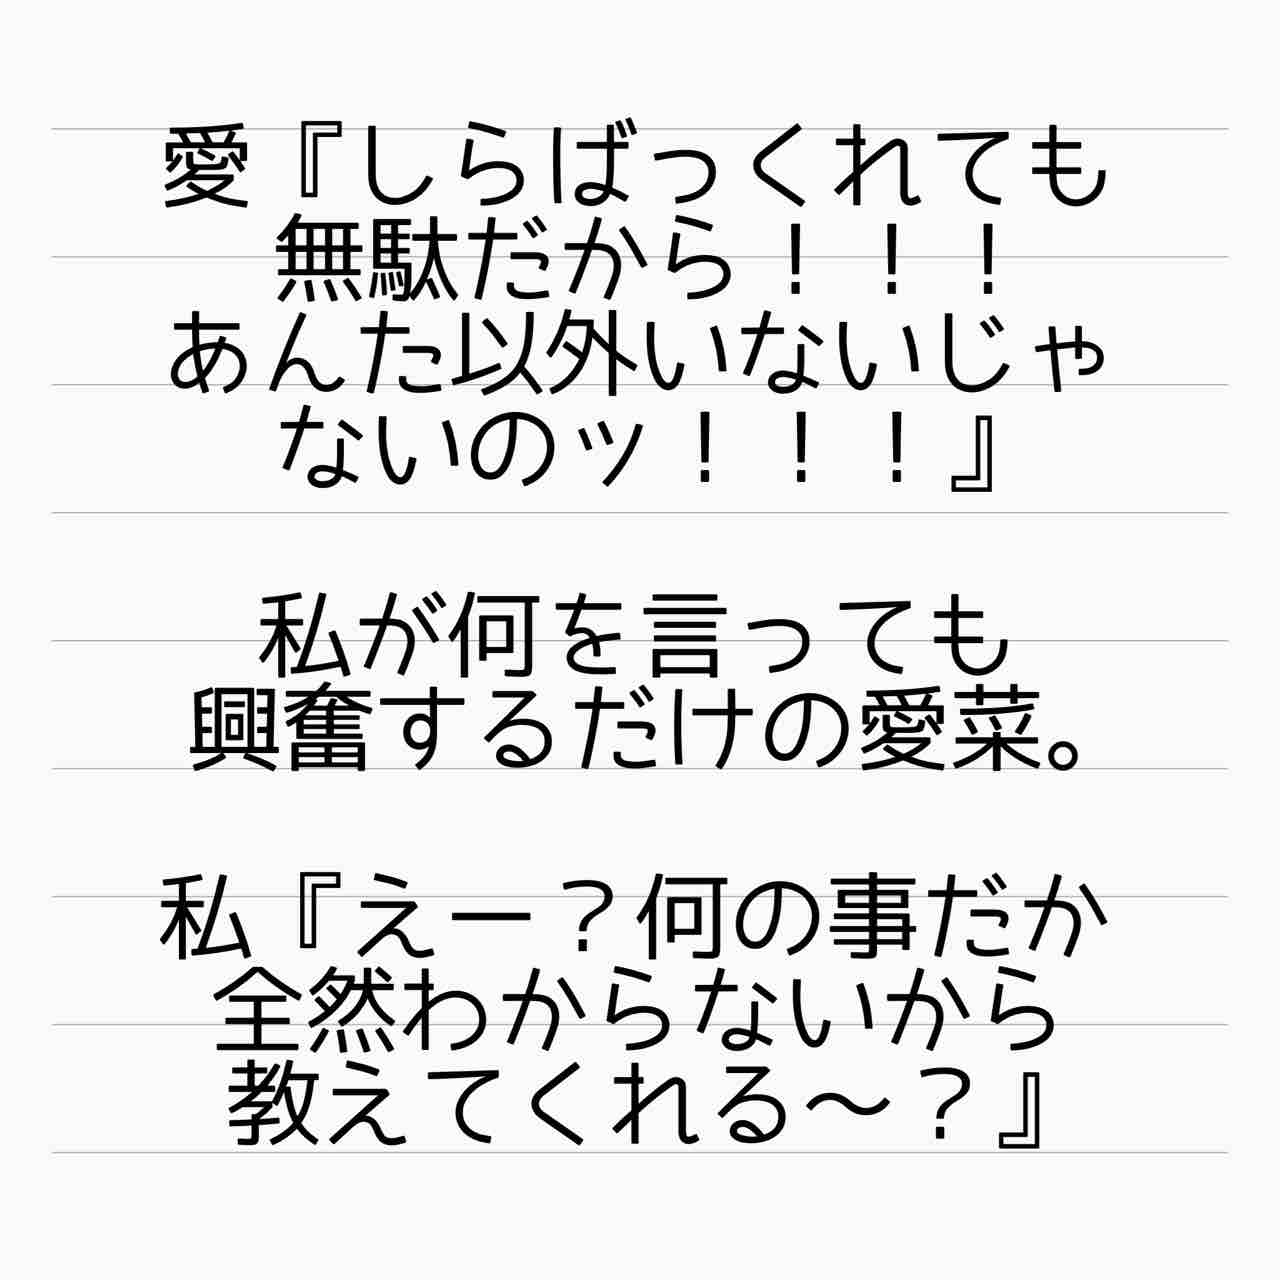 愛『しらばっくれても
無駄だから！！！
あんた以外いないじゃ
ないのッ！！！』
私が何を言っても
興奮するだけの愛菜。
私『えー？何の事だか
全然わからないから
教えてくれる〜？』